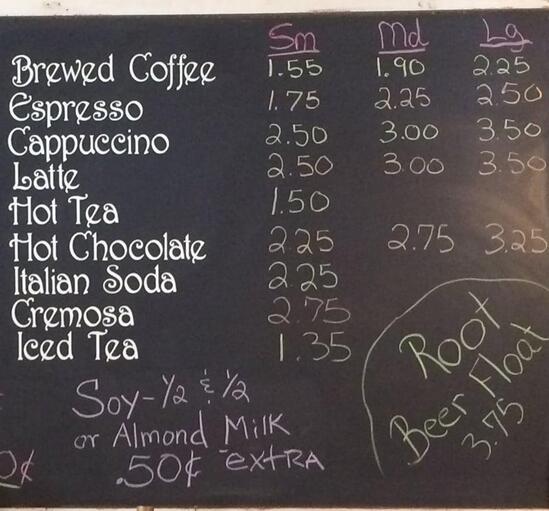 Sm Md Lg
Brewed Coffee 1.55 1.90 2.25
Espresso 1.75 2.25 2.50
Cappuccino 2.50 3.00 3.50
Latte 2.50 3.00 3.50
Hot Tea 1.50
Hot Chocolate 2.25 2.75 3.25
Italian Soda 2.25
Cremosa 2.75
Iced Tea 1.35
Soy - 1/2 & 1/2
or Almond Milk
.50¢ extra
Root
Beer Float
3.75